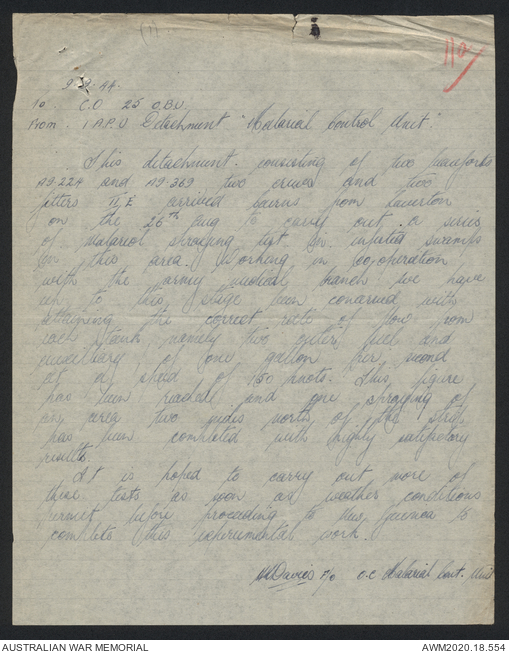 (1)
11a
9.9.44.
To. C.O 25 O.B.U.
From. 1 A.P.U Detachment "Malarial Control Unit".
This detachment. consisting of two beauforts
A9.224 and A9-369 two crews and two
fitters IIE arrived cairns from laverton
on the 26th Aug to carry out a series
of malarial spraying test on infested swamps
in this area. Working in co.operation
with the army medical branch we have
up to this stage been concerned with
attaining the correct rate of flow from
each tank, namely two outer, fuel and
auxiliary, of one gallon per second
at a speed of 150 knots. This figure
has been reached and one spraying of
an area two miles north of the strip
has been completed with highly satisfactory
results.
It is hoped to carry out more of
these tests as soon as weather conditions
permit before proceeding to New Guinea to
complete this experimental work.
Davies F/O O.C Malarial Cont. Unit
AUSTRALIAN WAR MEMORIAL
AWM2020.18.554